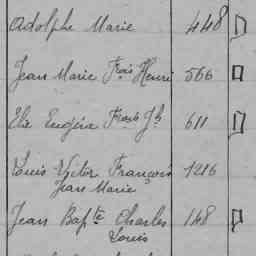 Adolphe Marie 448
Jean Marie Frois Henri 566
Elie Eugène Frois Jh 611
Louis Victor François 1216
Jean Marie
Jean Bapte Charles 148
Louis